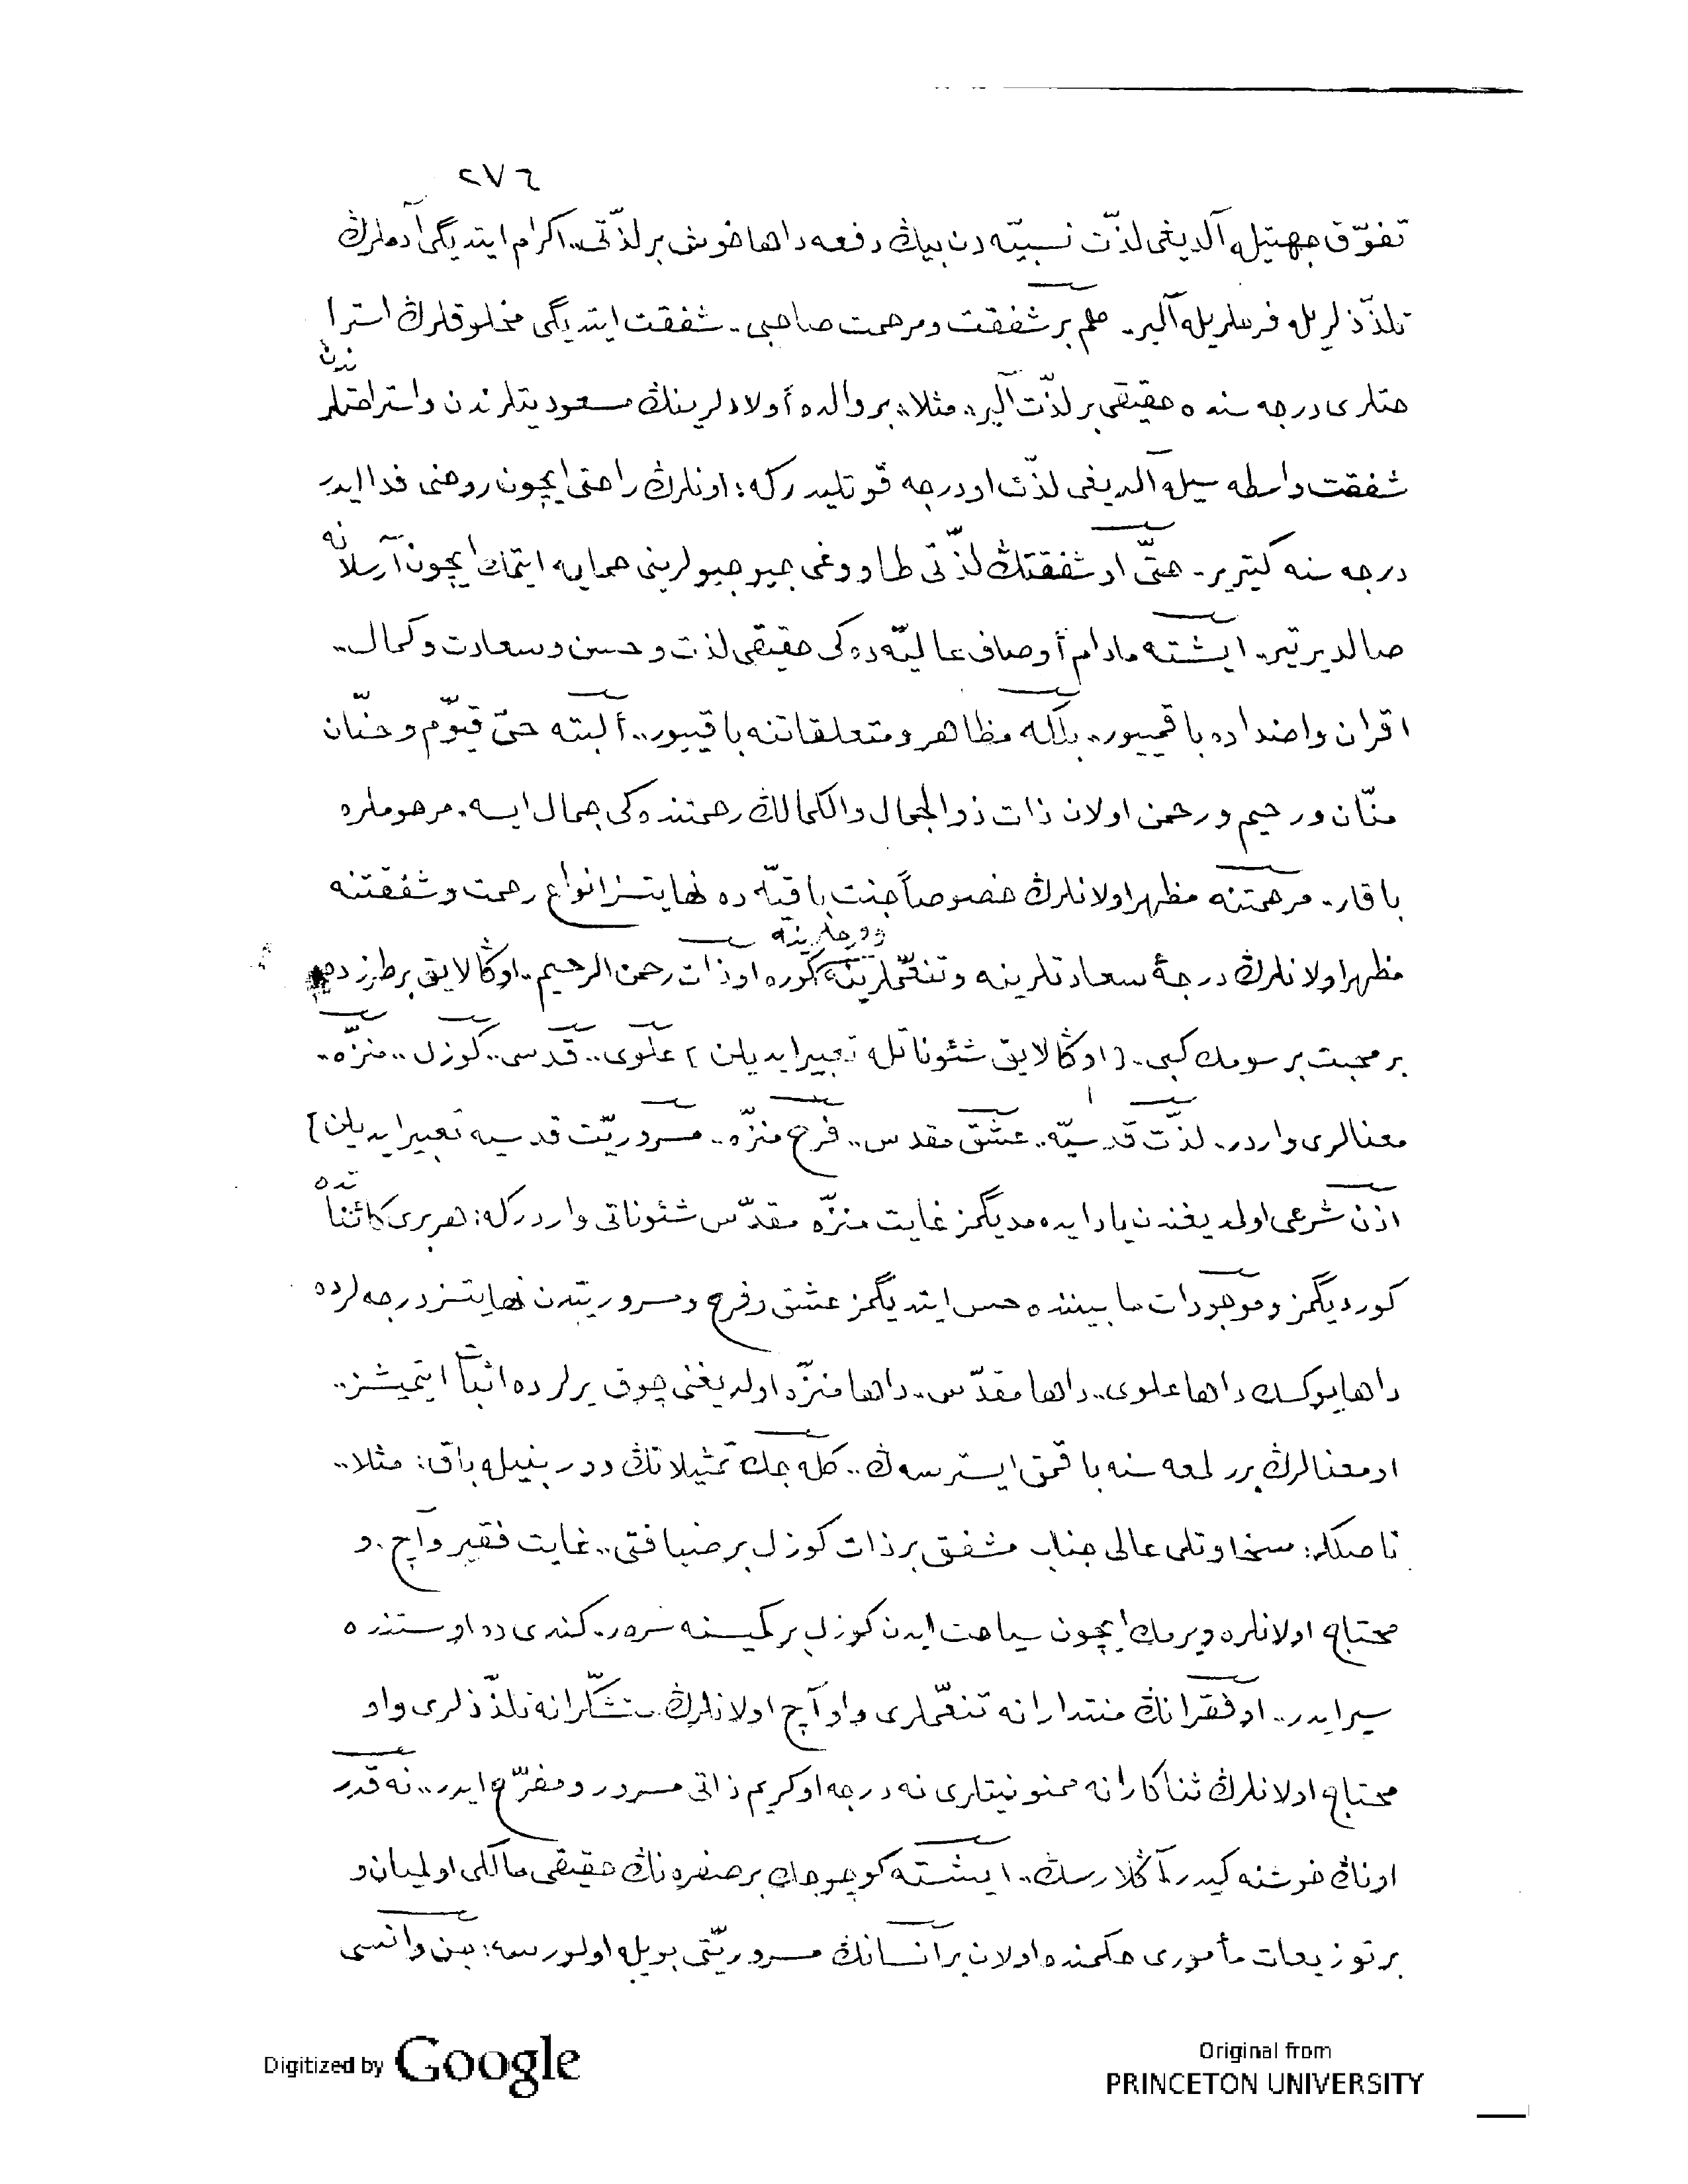 ٢٧٦
تفوّق جهتيله آلديغى لذّت نسبيّه دن بيڭ دفعه داها خوش بر لذّتى.. اكرام ايتديگى آدملرڭ
تلذّذلريله فرحلريله آلير. هم بر شفقت ومرحمت صاحبى.. شفقت ايتديگى مخلوقلرڭ استرا
حتلرى درجه سنده حقيقى بر لذّت آلير.. مثلا.. بر والده أولادلرينڭ مسعوديتلرندن واستراحتلر
ندن
شفقت واسطه سيله آلديغى لذّت او درجه قوّتليدركه: اونلرڭ راحتى ايچون روحنى فدا ايدر
درجه سنه كتيرير. حتّى او شفقتڭ لذّتى طاووغى جيوجيولرينى حمايه ايتمك ايچون آرسلانه
صالديرتير. ايشته مادام أوصاف عاليّه ده كى حقيقى لذت و حسن وسعادت وكمال..
اقران واضداده باقميور.. بلكه مظاهر ومتعلقاتنه باقييور.. ألبته حىّ قيّوم و حنّان
منّان ورحيم ورحمن اولان ذات ذوالجمال والكمالڭ رحمتنده كى جمال ايسه. مرحوملره
باقار. مرحمتنه مظهر اولانلرڭ خصوصاً جنت باقيّه ده نهايتسز انواع رحمت وشفقتنه
وفرحلرينه
مظهر اولانلرڭ درجۀ سعادتلرينه وتنعّملرينه كوره او ذات رحمن الرحيم.. اوڭا لايق بر طرزده
بر محبت بر سومك كبى.. [اوڭا لايق شئوناتله تعبير ايديلن] علوى.. قدسى.. كوزل.. منزّه..
معنالرى واردر. لذّت قدسيّه.. عشق مقدس.. فرح منزّه.. مسروريّت قدسيه تعبير ايديلن]
اذن شرعى اولمديغندن ياد ايده مديگمز غايت منزّه مقدّس شئوناتى واردركه: هر برى كائناتده
كورديگمز وموجودات مابيننده حس ايتديگمز عشق وفرح ومسروريتدن نهايتسز درجه لرده
داها يوكسك داها علوى.. داها مقدّس.. داها منزّه اولديغنى چوق يرلرده اثبات ايتمیشز..
او معنالرڭ برر لمعه سنه باقمق ايسترسه ڭ.. كله جك تمثيلاتڭ دوربينيله باق: مثلا..
ناصلكه: سخاوتلى عالى جناب مشفق بر ذات كوزل بر ضيافتى.. غايت فقير وآچ. و
محتاج اولانلره ويرمك ايچون سياحت ايدن كوزل بر كميسنه سرر. كندى ده اوستنده
سير ايدر.. او فقرانڭ منتدارانه تنعّملرى واو آچ اولانلرڭ متشكّرانه تلذّذلرى واو
محتاج اولانلرڭ ثناكارانه ممنونيتلرى نه درجه او كريم ذاتى مسرور ومفرّح ايدر.. نه قدر
اونڭ خوشنه كيدر آڭلارسڭ.. ايشته كوچوجك بر صفره نڭ حقيقى مالكى اولميان و
بر توزيعات مأمورى حكمنده اولان بر انسانڭ مسروريّتى بويله اولورسه: جن وانسى
Digitized by Google
Original from
PRINCETON UNIVERSITY